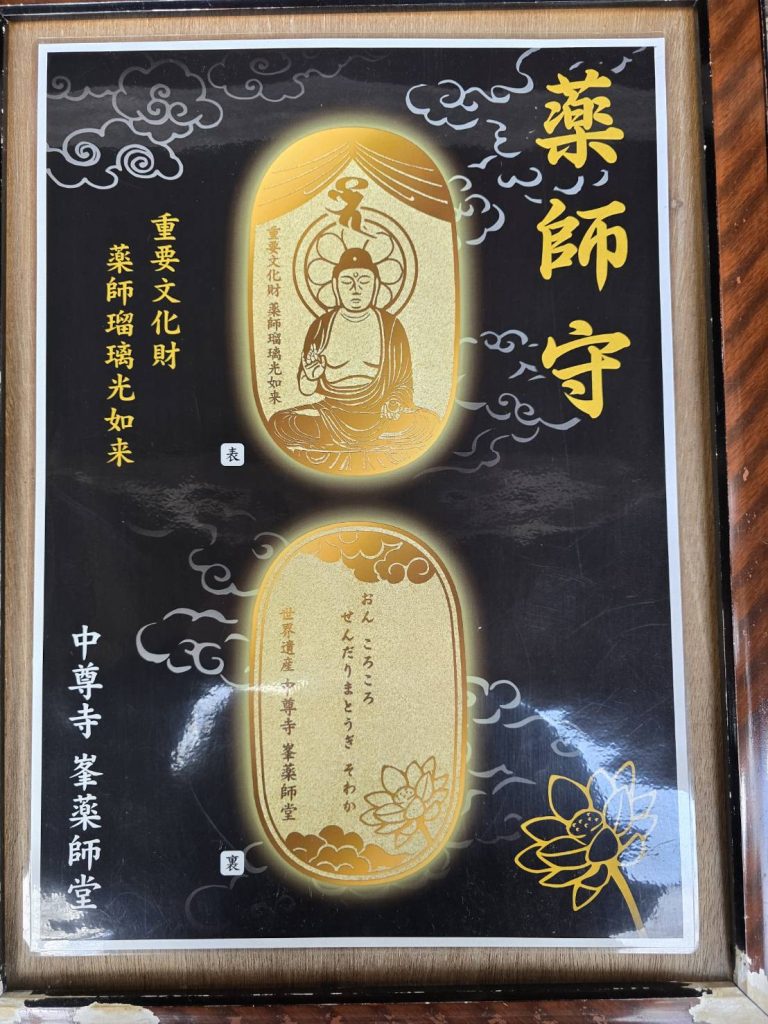 薬師守
重要文化財
薬師瑠璃光如来
重要文化財 薬師瑠璃光如来
表
おん ころころ
せんだりまとうぎ そわか
世界遺産 中尊寺 峯薬師堂
裏
中尊寺 峯薬師堂